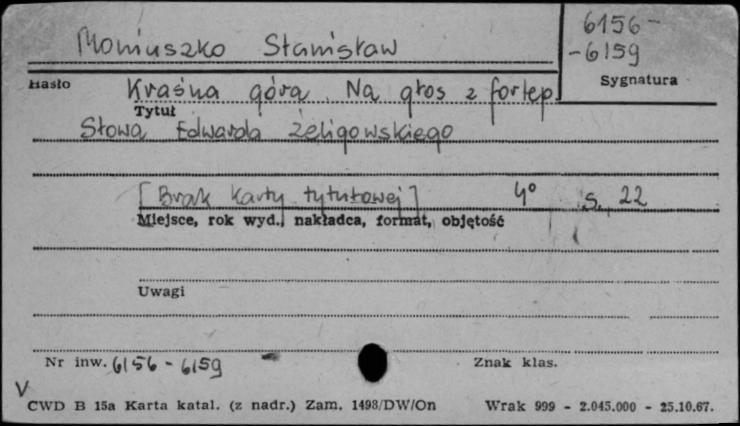 6156-
Moniuszko Stanisław
-6159
Hasło
Sygnatura
Kraśna góra. Na głos z fortep.
Tytuł
Słowa Edwarda Żeligowskiego
[Brak karty tytułowej] 4° s. 22
Miejsce, rok wyd., nakładca, format, objętość
Uwagi
Nr inw. 6156 - 6159 Znak klas.
V
CWD B 15a Karta katal. (z nadr.) Zam. 1498/DW/On Wrak 999 - 2.045.000 - 25.10.67.